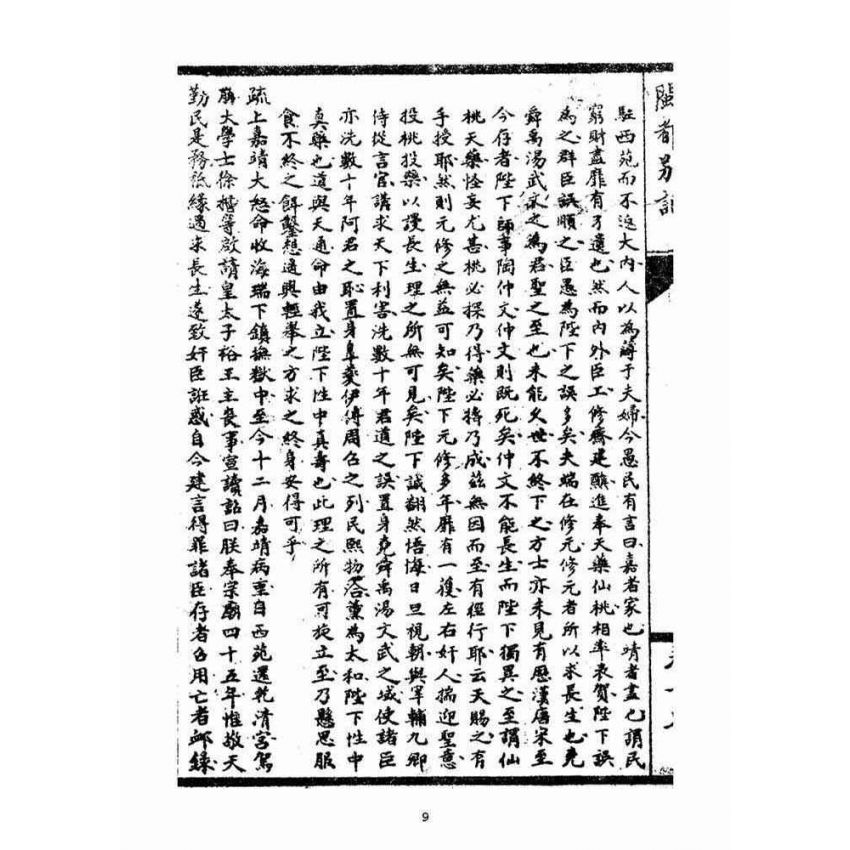 閩都別記
駐西苑而不返大內人以為薄于夫婦今愚民有言曰嘉者家也靖者盡也謂民
窮財盡靡有孑遺也然而內外臣工修齋建醮進奉天藥仙桃相率表賀陛下誤
為之群臣誤順之臣愚為陛下之誤多矣夫端在修元修元者所以求長生也堯
舜禹湯武之為君聖之至也未能久世不終下之方士亦未見有歷漢唐宋至
今存者陛下師事陶仲文仲文則既死矣仲文不能長生而陛下獨異之至謂仙
桃天藥怪妄尤甚桃必採乃得藥必搗乃成茲無因而至有徑行耶云天賜之有
手授耶然則元修之無益可知矣陛下元修多年靡有一復左右奸人揣迎聖意
投桃投藥以謾長生理之所無可見矣陛下誠翻然悟悔日旦視朝與宰輔九卿
侍從言官講求天下利害洗數十年君道之誤置身堯舜禹湯文武之域使諸臣
亦洗數十年阿君之恥置身皐夔伊傅周召之列民熙物洽薰為太和陛下性中
真藥也道與天通命由我立陛下性中真壽也此理之所有可旋立至乃懸思服
食不終之餌鑿想遥興輕舉之方求之終身安得可乎
疏上嘉靖大怒命收海瑞下鎮撫獄中至今十二月嘉靖病重自西苑還乾清宮駕
崩大學士徐楷等啟請皇太子裕王主喪事宣讀詔曰朕奉宗廟四十五年惟敬天
勤民是務祇緣過求長生遂致奸臣誑惑自今建言得罪諸臣存者召用亡者卹錄
9